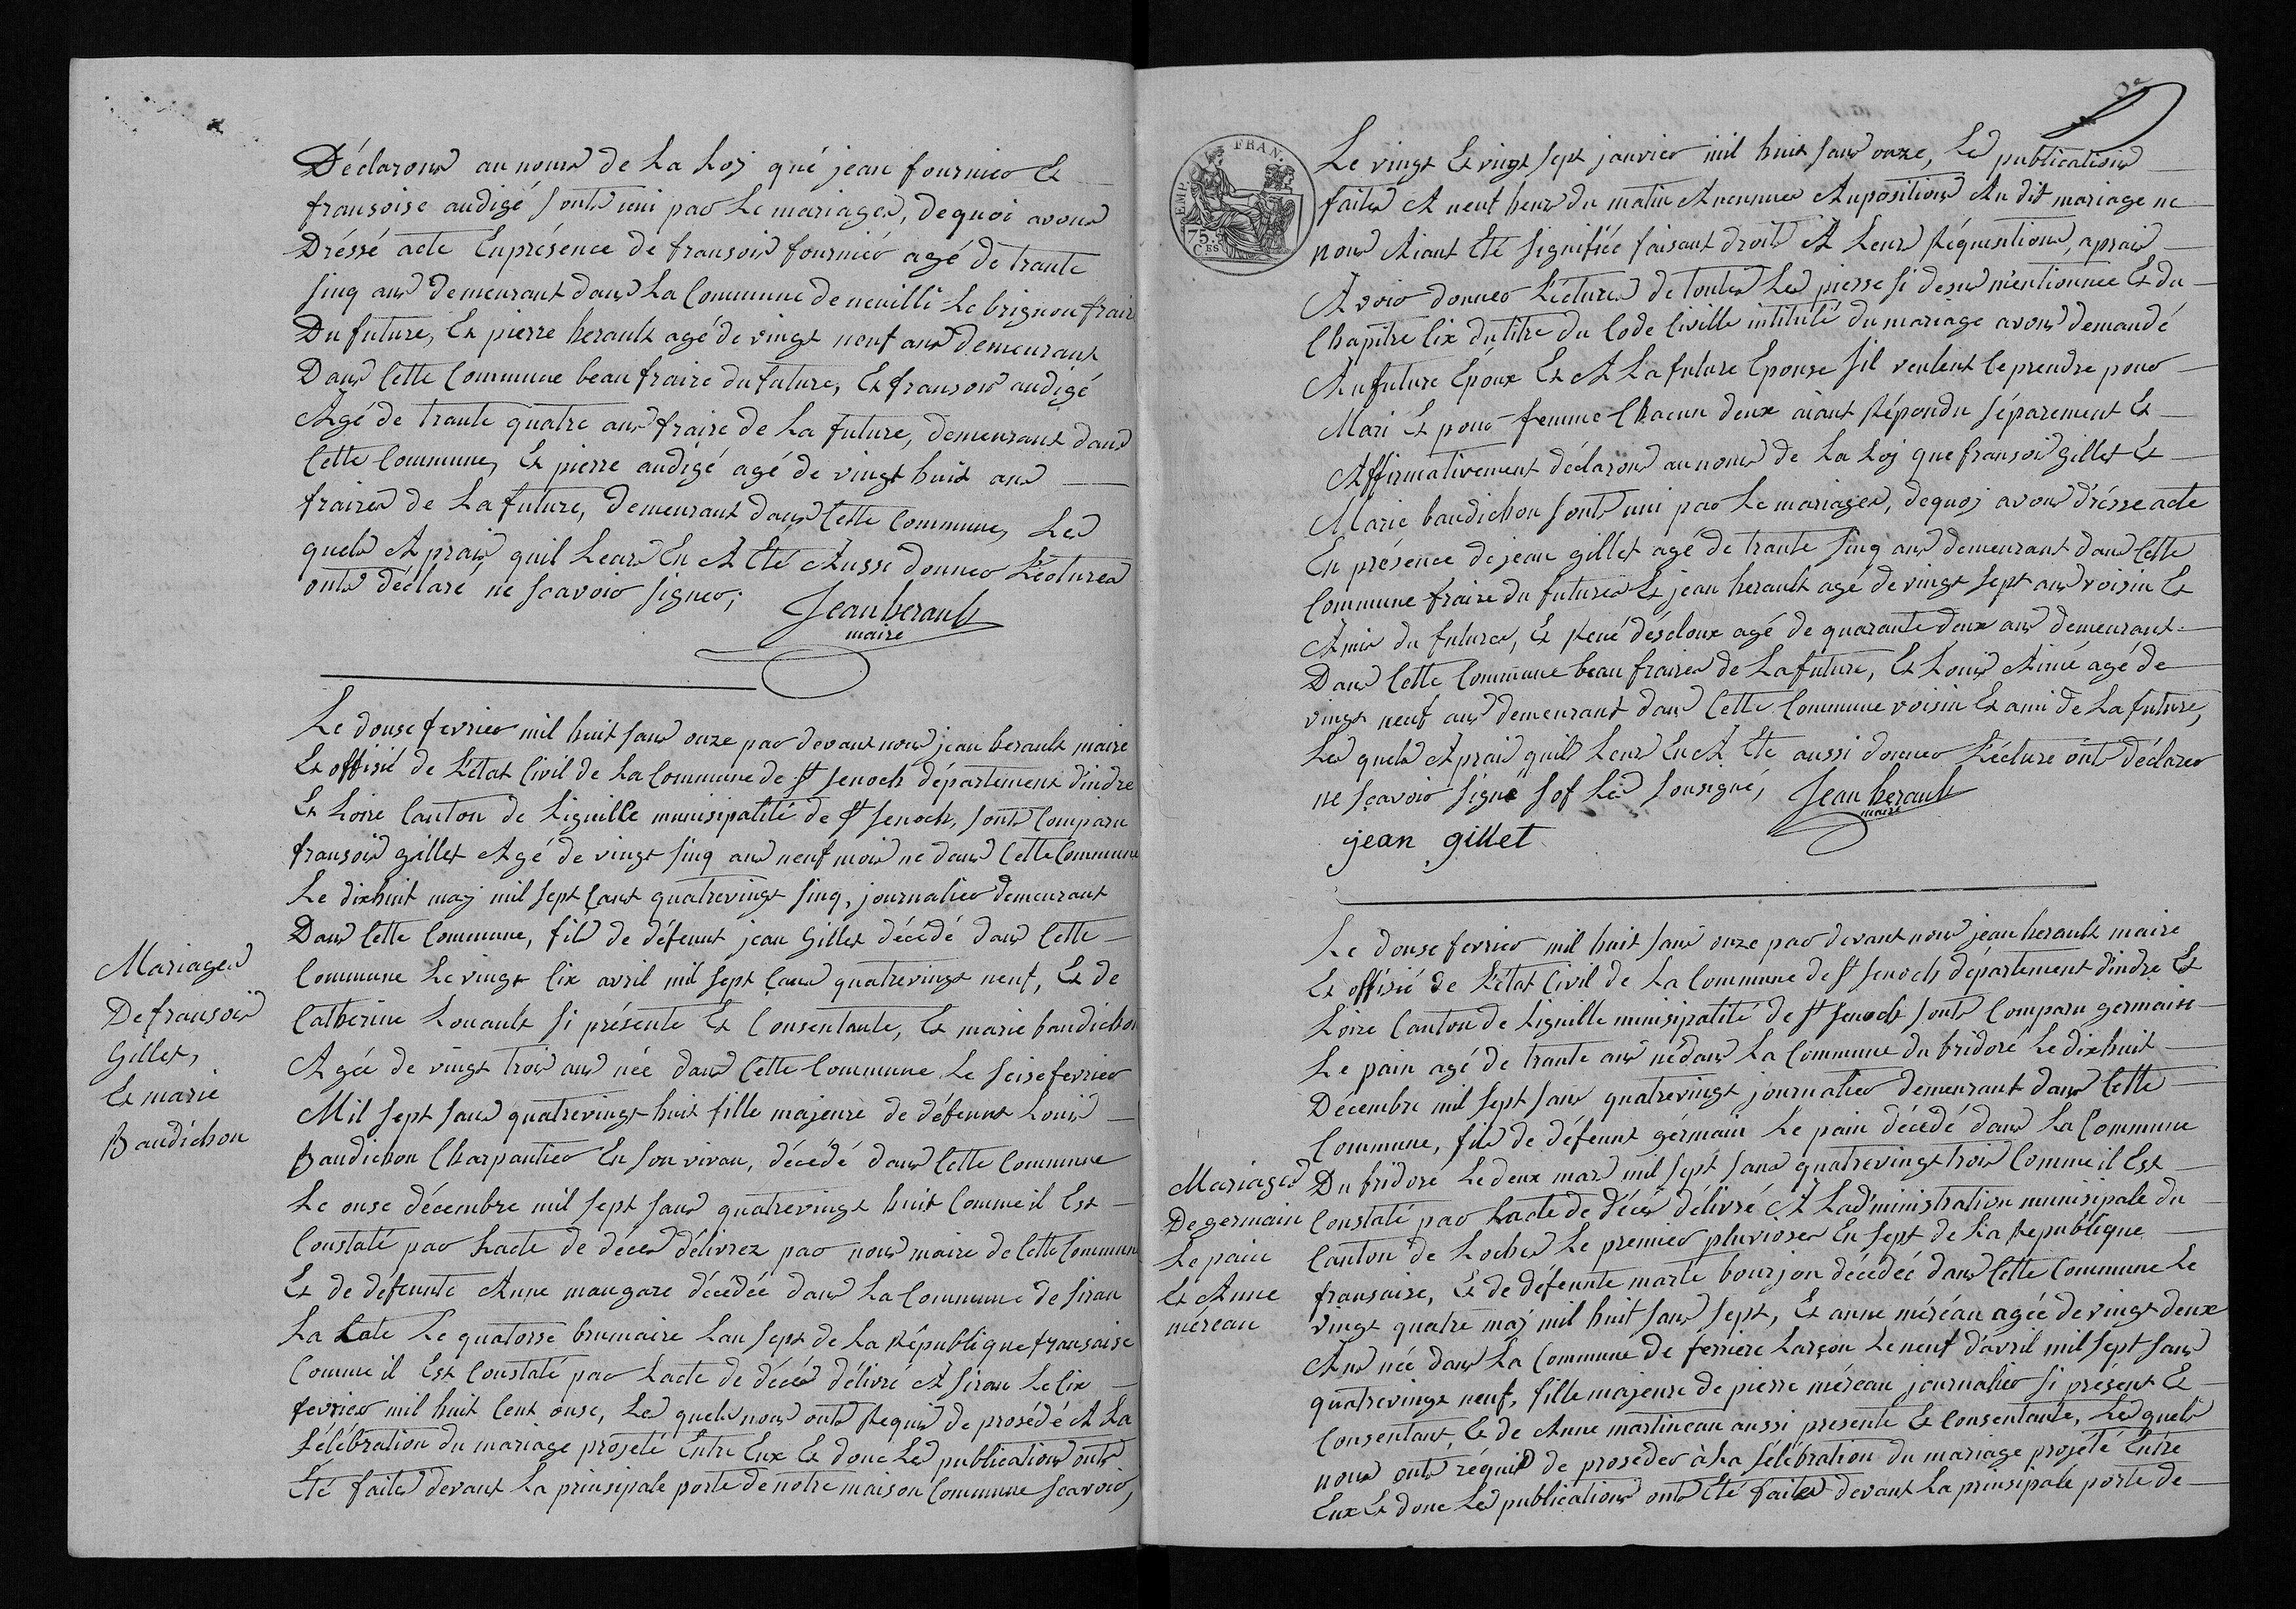 Déclarons au noms de La Loj qué jean fournier Et
fransoise audigé sonts uni par Le mariages, de quoi avons
Dréssé acte En présence de fransois fourniér agé de trante
sinq ans demeurant dans La Commune de neuilli Le brignon frair
Du future, Et pierre herault agé de vingt neuf ans demeurant
Dans Cette Commune beau fraire du future, Et fransois audigé
Agé de trante quatre ans fraire de La future, demeurant dans
Cette Commune, Et pierre audigé agé de vingt huit ans
fraires de La future, demeurant dans Cette Commune, Les
quels Aprais quil Leurs En A Eté Aussi donner Léctures
onts déclaré ne scavoir signer;
Jean herault
maire
Le douse fevrier mil huit sans onze par devant nous jean herault maire
Et offisié de L'état Civil de La Commune de St Senoch département d'indre
Et Loire Canton de Liguille munisipalité de St Senoch, sonts Comparu
fransois gillet Agé de vingt sinq ans neuf mois ne dans Cette Commune
Le dixhuit maj mil sept çant quatrevingt sinq, journalier demeurant
Dans Cette Commune, fils de défeunt jean Gillet décédé dans Cette
Commune Le vingt Cix avril mil sept çans quatrevingt neuf, Et de
Catherine Louault si présente Et Consentante, Et marie baudichon
Agée de vingt trois ans née dans Cette Commune Le seise fevrier
Mil sept sans quatrevingt huit fille majeure de défeunt Louis
Baudichon Charpantier En son vivan, décédé dans Cette Commune
Le onse décembre mil sept sans quatrevingt huit Comme il Est
Constaté par Lacte de déces délivrez par nous maire de Cette Commune
Et de défeunte Anne maugare décédée dans La Commune de Siran
La Late Le quatorse brumaire Lan sept de La République fransaise
Comme il Est Constaté par Lacte de décès délivré A Siran Le Cix
fevrier mil huit Cent onse, Les quels nous onts Requis de prosédé A La
Sélébration du mariage projeté Entre Eux Et donc Les publications onts
Été faites devant La prinsipale porte de notre maison Commune scavoir,
Mariages
De fransois
Gillet,
Et marie
Baudichon
EMP. FRAN.
75
Ces
Le vingt Et vingt sept janvier mil huit sans onze, Les publications
faites A neuf heurs du matin Aucunnes Aupositions Au dit mariage ne
nous Aiant Eté Signifiée faisant droits A Leurs Réquisitions, aprais
Avoir donner Léctures de toutes Les piesse si desus mentionnée Et du
Chapitre Cix du titre du Code Civille intitulé du mariage avons demandé
Au future Époux Et A La future Épouse sil veulent Ce prendre pour
Mari Et pour femme Chacun deux aiant Répondu séparement Et
Affirmativement déclarons au noms de La Loj que fransois gillet Et
Marie baudichon sonts uni par Le mariages, de quoj avons drésse acte
En présence de jean gillet agé de trante sinq ans demeurant dans Cette
Commune fraire du futures Et jean herault agé de vingt sept ans voisin Et
Amis du future, Et René désdoux agé de quarante deux ans demeurant
Dans Cette Commune beau fraires de La future, Et Louis Aimé agé de
vingt neuf ans demeurant dans Cette Commune voisin Et ami de La future,
Les quels Aprais quils Leurs En A Eté aussi donner Lécture onts déclarer
ne scavoir signé sof Les sousigné, Jean herault
maire
jean gillet
Le douse fevrier mil huit sans onze par devant nous jean herault maire
Et offisié de L'état Civil de La Commune de St Senoch département d'indre Et
Loire Canton de Liguille munisipalité de St Senoch sonts Comparu germain
Le pain agé de trante ans né dans La Commune du bridoré Le dixhuit
Décembre mil sept sans quatrevingt journalier demeurant dans Cette
Commune, fils de défeunt gérmain Le pain décédé dans La Commune
Du bridoré Le deux mars mil sept sans quatrevingt trois Comme il Est
Constaté par Lacte de décés délivré A Ladministration munisipale du
Canton de Loches Le premier pluvioses En sept de La Republique
fransaise, Et de défeunte marte bourjon décédée dans Cette Commune Le
vingt quatre maj mil huit sans sept, Et anne méréau agée de vingt deux
Ans née dans La Commune de ferriere Larçon Le neuf d'avril mil sept sans
quatrevingt neuf, fille majeure de pierre méréau journalier si présent Et
Consentant, Et de Anne martineau aussi presente Et Consentante, Les quels
nous onts réquis de proséder à La sélébration du mariage projété Entre
Eux Et donc Les publications onts Eté faites devant La prinsipale porte de
Mariages
De germain
Le pain
Et Anne
méreau